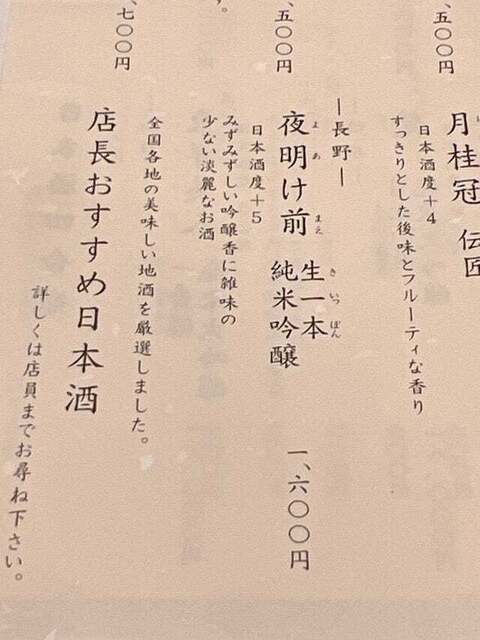 、五〇〇円
月桂冠 伝匠
日本酒度+4
すっきりとした後味とフルーティな香り
、五〇〇円
―長野―
夜明け前 生一本
純米吟醸
よ あ まえ き いっ ぽん
日本酒度+5
みずみずしい吟醸香に雑味の
少ない淡麗なお酒
一、六〇〇円
す。
、七〇〇円
全国各地の美味しい地酒を厳選しました。
店長おすすめ日本酒
詳しくは店員までお尋ね下さい。